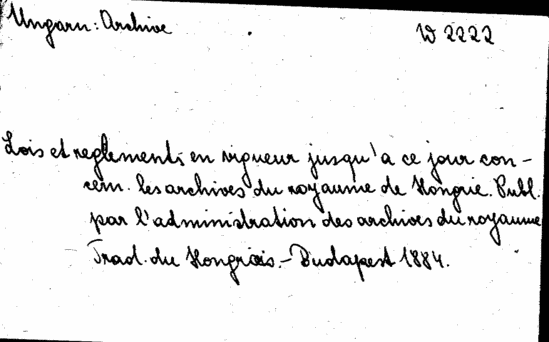 Ungarn: Archive
W 2222
Lois et reglements en vigueur jusqu'a ce jour con-
cern. les archives du royaume de Hongrie. Publ.
par l'administration des archives du royaume
Trad. du Hongrois. - Budapest 1884.